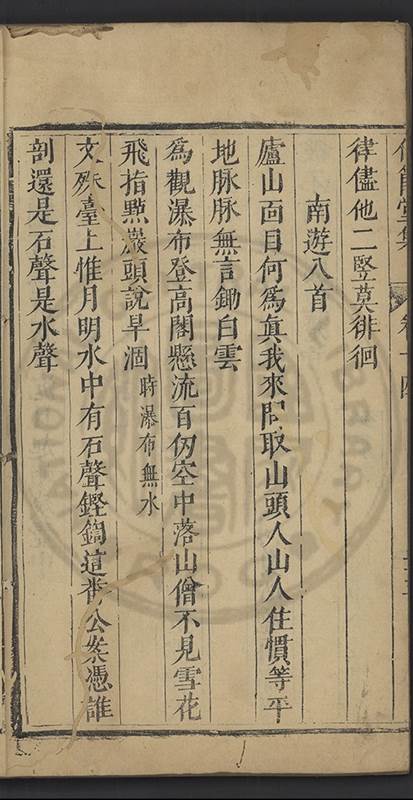 律儘他二竪莫徘徊
南遊八首
廬山面目何爲眞我來問取山頭人山人住慣等平
地脉脉無言鋤白雲
爲觀瀑布登高閣懸流百仭空中落山僧不見雪花
飛指點巖頭說旱涸時瀑布無水
文殊臺上惟月明水中有石聲鏗鍧這番公案憑誰
剖還是石聲是水聲